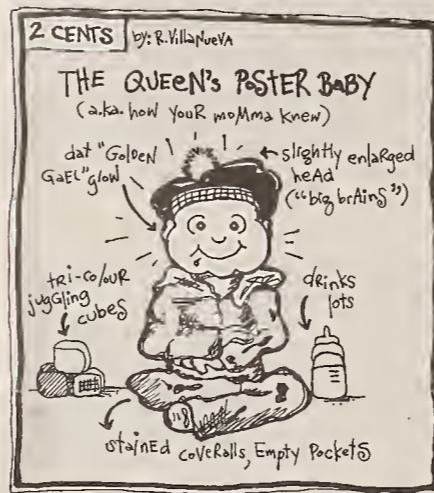 2 CENTS
by: R.VillaNueVA
THE QUEEN's POSTER BABY
(a.k.a. how YouR moMma knew)
dat "GolDeN
GaEL" glow
slightly enlarged
heAd
("big brAinS")
tRi-colouR
juggling
cubes
dRinks
lots
stainEd coveRalls, Empty PocketS